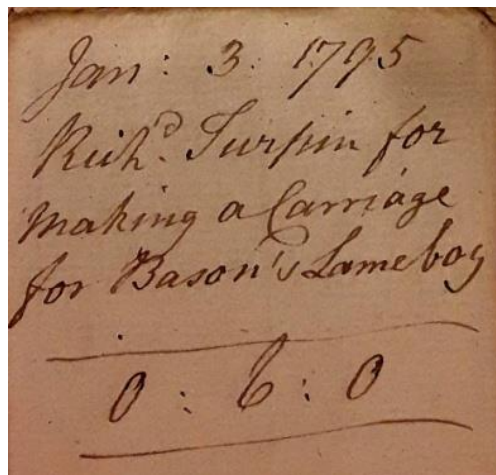 Jan: 3. 1795
Rich.d Turpin for
making a Carriage
for Bason's Lame boy
0 : 6 : 0